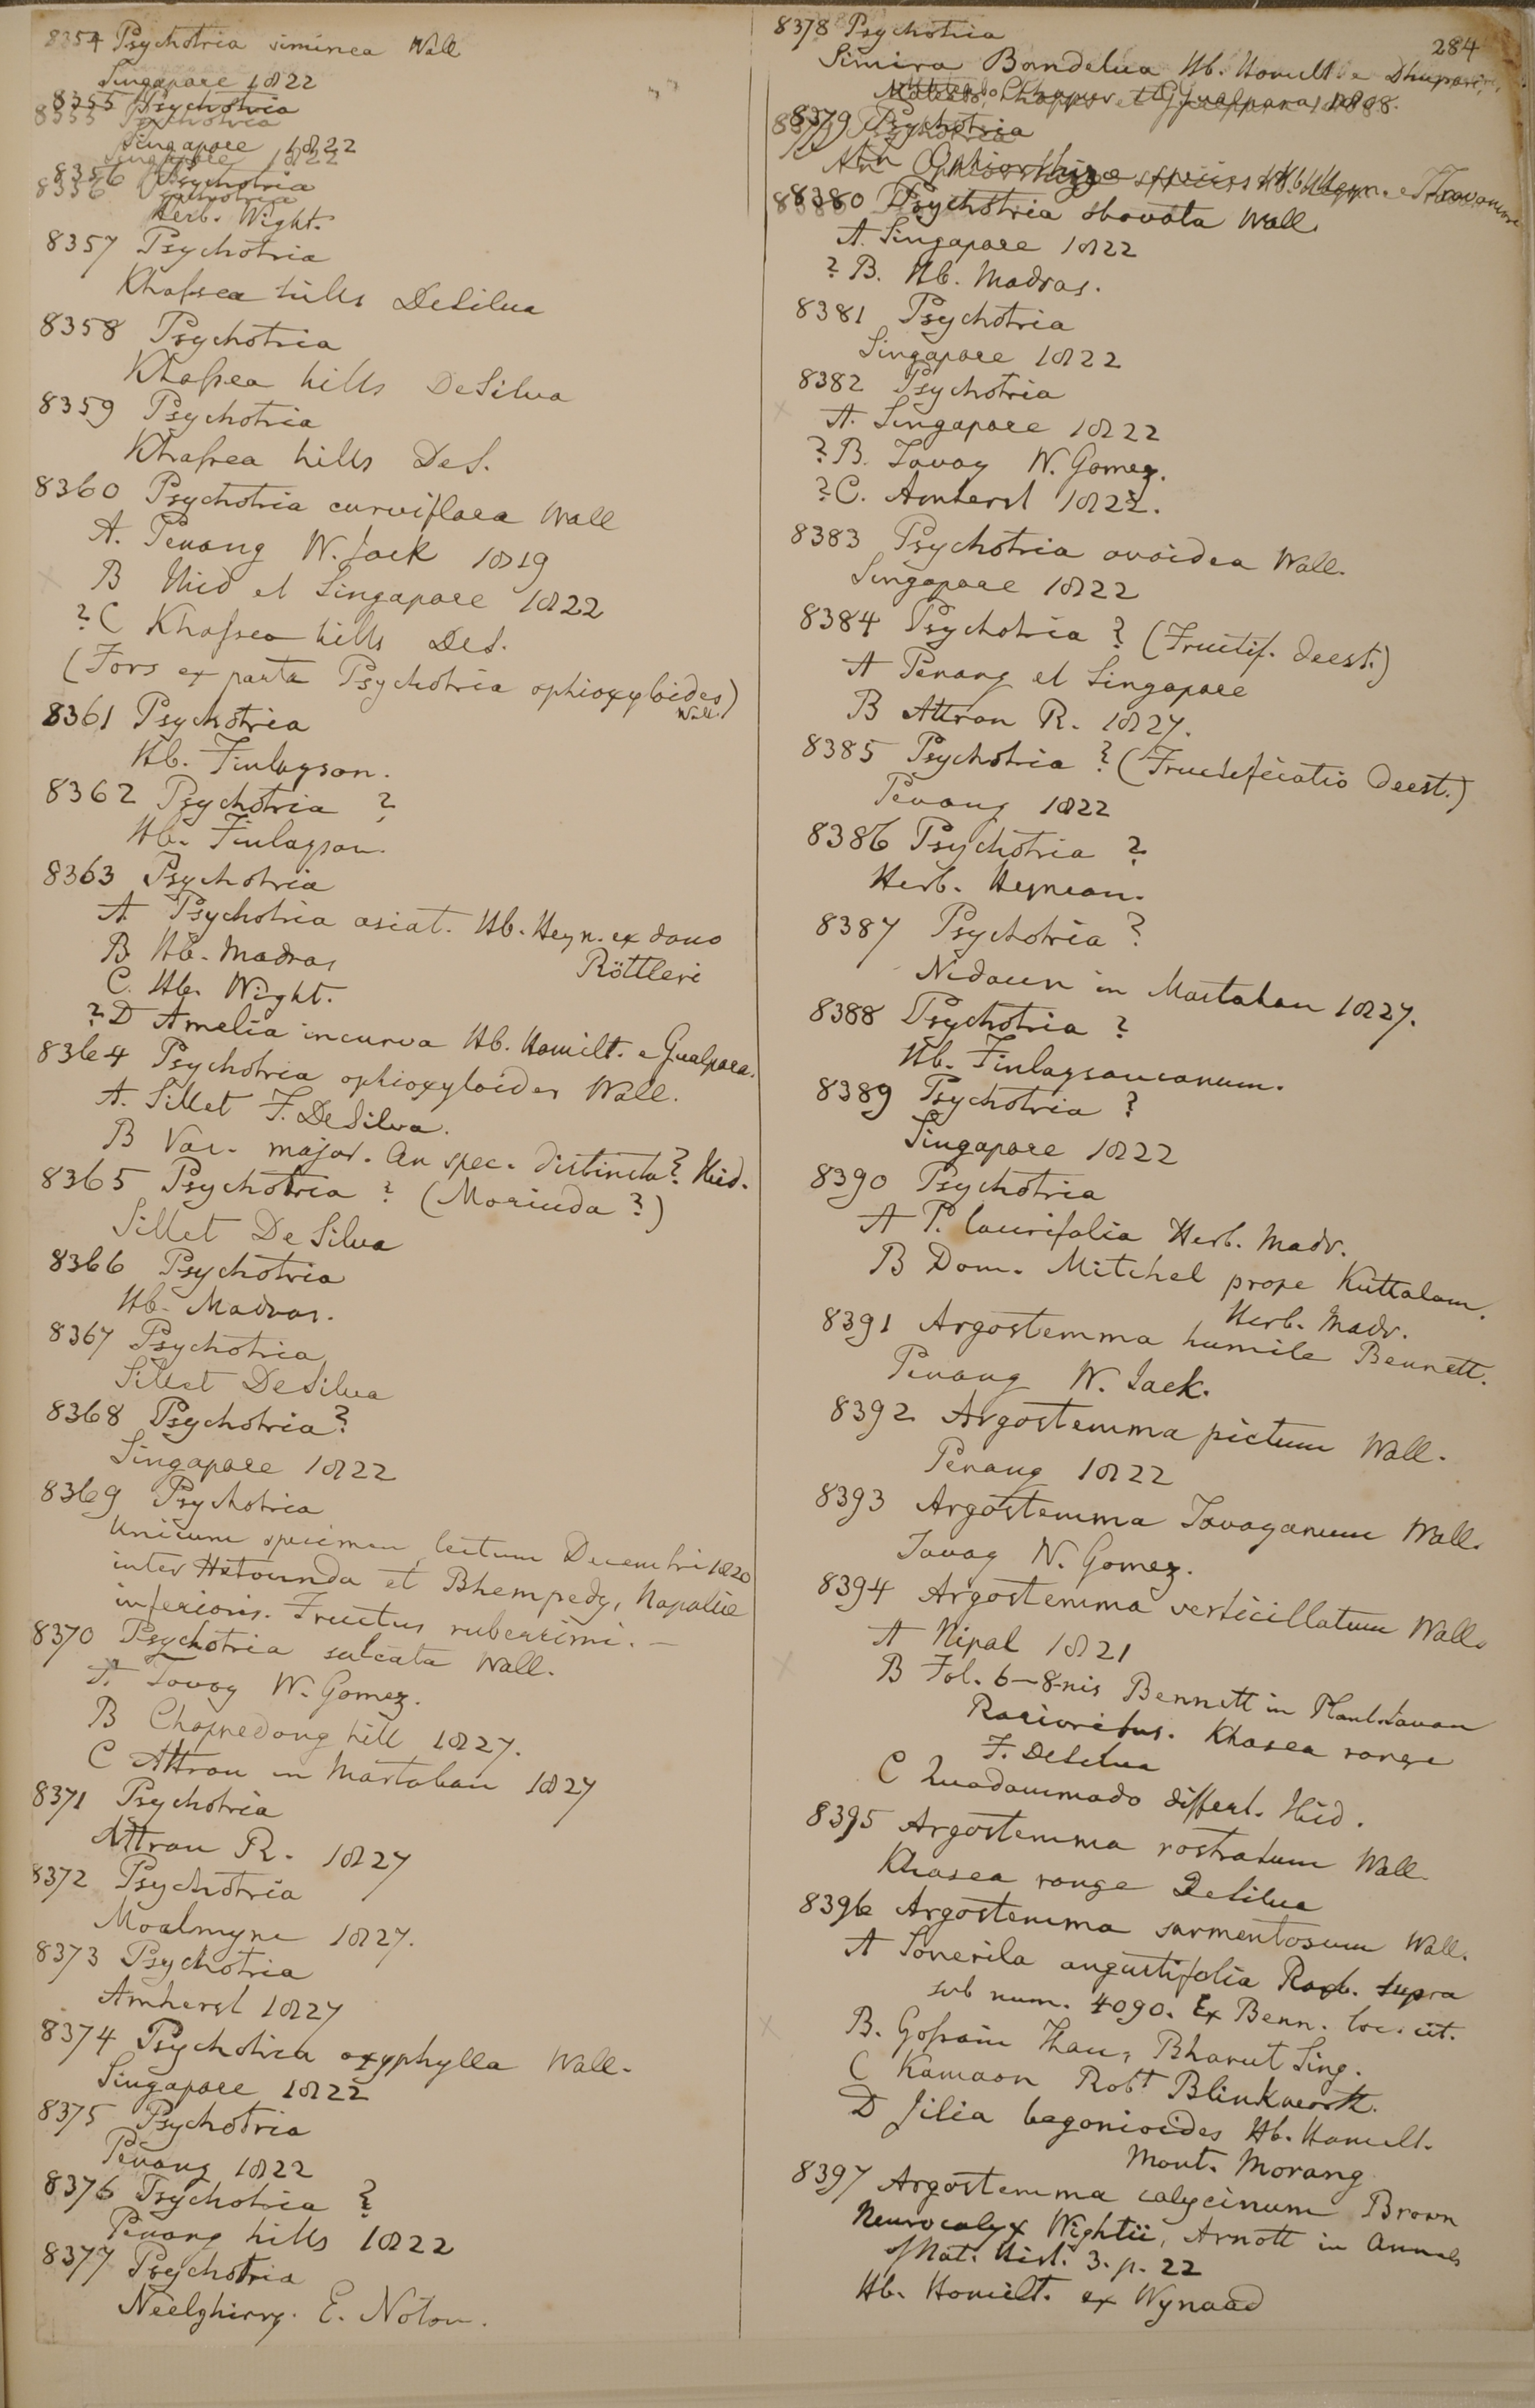 8354 Psychotria viminea Wall
Singapore 1822
8355 Psychotria
Singapore 1822
8356 Psychotria
Herb. Wight.
8357 Psychotria
Khassea hills DeSilva
8358 Psychotria
Khassea hills DeSilva
8359 Psychotria
Khassea hills DeS.
8360 Psychotria curviflora Wall
A. Penang W. Jack 1819
B Ibid et Singapore 1822
? C Khassea hills DeS.
(Fors ex parte Psychotria ophioxyloides)
Wall.
8361 Psychotria
Hb. Finlayson.
8362 Psychotria ?
Hb. Finlayson.
8363 Psychotria
A Psychotria asiat. Hb. Heyn. ex dono
Röttleri
B Hb. Madras
C. Hb. Wight.
? D Amelia incurva Hb. Hamilt. e Gualpara.
8364 Psychotria ophioxyloides Wall.
A. Sillet F. DeSilva.
B Var. major. An spec. distincta? Ibid.
8365 Psychotria ? (Morinda ?)
Sillet DeSilva
8366 Psychotria
Hb. Madras.
8367 Psychotria
Sillet DeSilva
8368 Psychotria ?
Singapore 1822
8369 Psychotria
Unicum specimen lectum Decembri 1820
inter Hetounda et Bhempedy, Napaliæ
inferioris. Fructus ruberrimi. —
8370 Psychotria sulcata Wall.
A. Tavoy W. Gomez.
B Chappedong hill 1827.
C Attran in Martaban 1827
8371 Psychotria
Attran R. 1827
8372 Psychotria
Moalmyne 1827.
8373 Psychotria
Amherst 1827
8374 Psychotria oxyphylla Wall.
Singapore 1822
8375 Psychotria
Penang 1822
8376 Psychotria ?
Penang hills 1822
8377 Psychotria
Neelghirry. E. Noton.
284
8378 Psychotria
Simira Hb. Hamilt e
et Gualpara 1808.
8379 Psychotria
An Ophiorrhizae species Hb. Heyn. e Travancore
8380 Psychotria obovata Wall.
A. Singapore 1822
? B. Hb. Madras.
8381 Psychotria
Singapore 1822
8382 Psychotria
A. Singapore 1822
? B. Tavoy W. Gomez.
? C. Amherst 1822.
8383 Psychotria ovoidea Wall.
Singapore 1822
8384 Psychotria ? (Fructif. deest.)
A Penang et Singapore
B Attran R. 1827.
8385 Psychotria ? (Fructificatio deest.)
Penang 1822
8386 Psychotria ?
Herb. Heynean.
8387 Psychotria ?
Nidaun in Martaban 1827.
8388 Psychotria ?
Hb. Finlaysonianum.
8389 Psychotria ?
Singapore 1822
8390 Psychotria
A P. laurifolia Herb. Madr.
B Dom. Mitchel prope Kuttalam.
Herb. Madr.
8391 Argostemma humile Bennett.
Penang W. Jack.
8392 Argostemma pictum Wall.
Penang 1822
8393 Argostemma Tavoyanum Wall.
Tavoy W. Gomez.
8394 Argostemma verticillatum Wall.
A Nipal 1821
B Fol. 6–8-nis Bennett in Plant. Javan
Rarioribus. Khasea range
F. DeSilva
C Quadammodo differt. Ibid.
8395 Argostemma rostratum Wall.
Khasea range DeSilva
8396 Argostemma sarmentosum Wall.
A Sonerila angustifolia Roxb. supra
sub num. 4090. Ex Benn. loc. cit.
B. Gossain Than, Bharut Sing.
C Kamaon Robt Blinkworth.
D Jilia begonioides Hb. Hamilt.
Mont. Morang
8397 Argostemma calycinum Brown
Neurocalyx Wightii, Arnott in Annals
of Nat. Hist. 3. p. 22
Hb. Hamilt. ex Wynaad